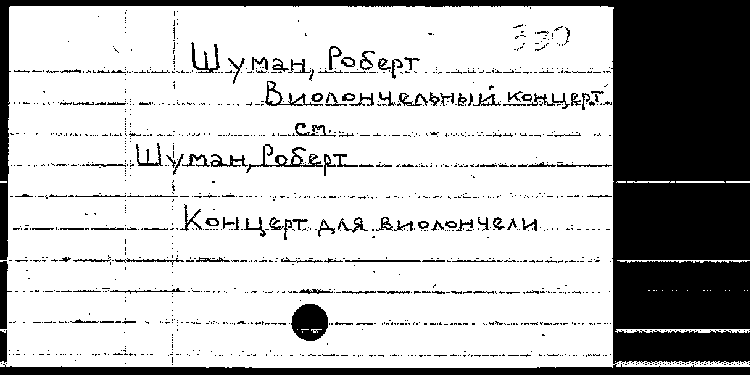 330
Шуман, Роберт
Виолончельный концерт
см.
Шуман, Роберт
Концерт для виолончели